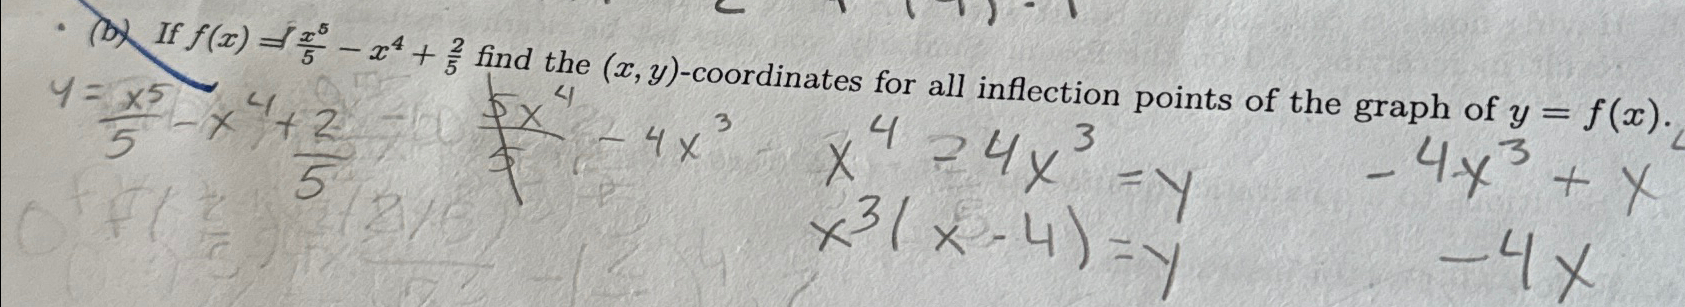 (b) If f(x) = x⁵/5 − x⁴ + 2/5 find the (x, y)-coordinates for all inflection points of the graph of y = f(x).
y = x⁵/5 − x⁴ + 2/5 5x⁴/5 − 4x³ x⁴ − 4x³ = y −4x³ + x
x³(x − 4) = y −4x